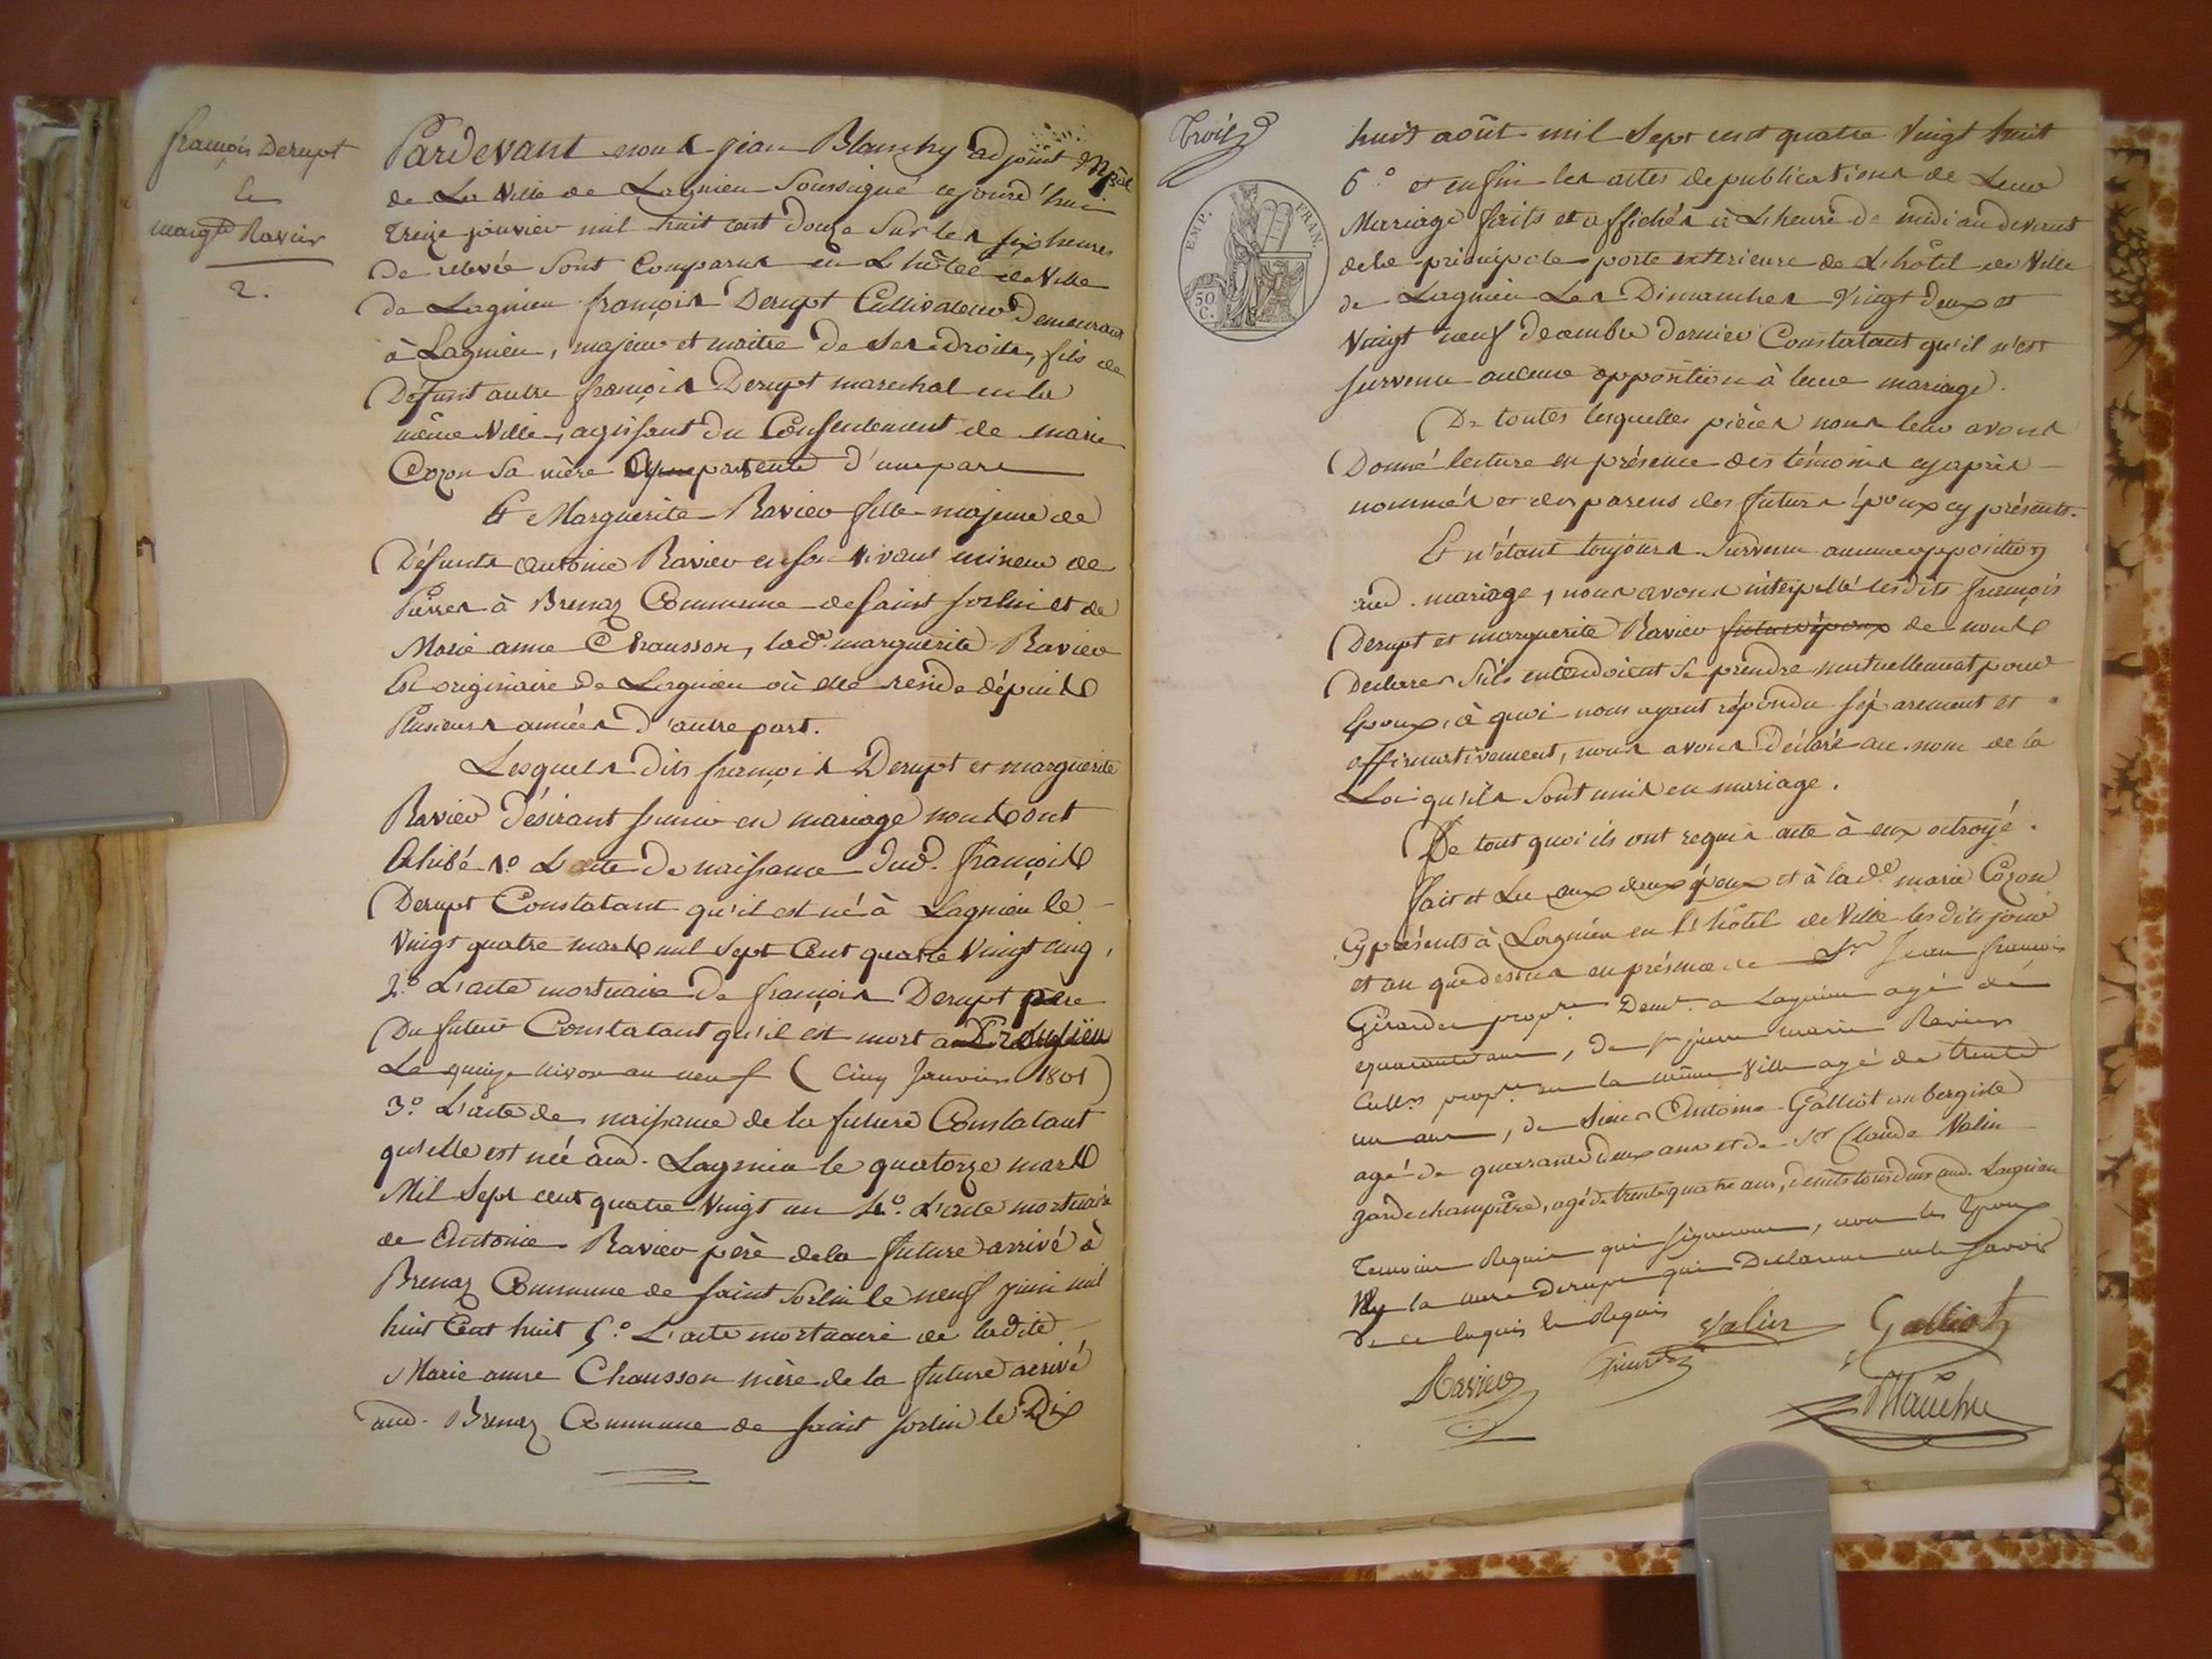 françois Derupt
&
margte Ravier
2.
Pardevant nous jean Blanchy adjoint Mpal
de La Ville de Lagnieu Soussigné cejourd'hui
treize janvier mil huit cent douze Sur les six heures
de relevée Sont Comparus en L'hôtel de Ville
de Lagnieu françois Derupt Cultivateur Demeurant
à Lagnieu, majeur et maitre de Ses droits, fils de
Défunt autre françois Derupt marechal en la
même Ville, agissant du Consentement de marie
Cozon Sa mère cy présente d'une part
Et Marguerite Ravier fille majeure de
Défunts Antoine Ravier en son vivant mineur de
Pierres à Brenaz Commune de saint sorlin et de
Marie anne Chausson, lade marguerite Ravier
Est originaire de Lagnieu où elle reside dépuis
Plusieurs années D'autre part.
Lesquels dits françois Derupt et marguerite
Ravier Désirant s'unir en mariage nous ont
Exhibé 1o L'acte de naissance dud. françois
Derupt Constatant qu'il est né à Lagnieu le
Vingt quatre mars mil Sept Cent quatre Vingt cinq,
2o L'acte mortuaire de françois Derupt père
Du futur Constatant qu'il est mort a
Le quinze nivose an neuf (Cinq Janvier 1801)
3o L'acte de naissance de la future Constatant
qu'elle est née aud. Lagnieu le quatorze mars
Mil Sept cent quatre Vingt un 4o. L'acte mortuaire
de Antoine Ravier père de la future arrivé à
Brenaz Commune de saint Sorlin le neuf juin mil
huit Cent huit 5o L'acte mortuaire de ladite
Marie anne Chausson mère de la future arrivé
aud. Brenaz Commune de saint sorlin le Dix
Trois
EMP. FRAN.
50 C.
huit août mil Sept cent quatre Vingt huit
6o et enfin les actes de publications de Leur
Mariage faits et affichés à L'heure de midi au devant
de la principale porte exterieure de L'hôtel de Ville
de Lagnieu Les Dimanches Vingt deux et
Vingt neuf décembre dernier Constatant qu'il n'est
survenu aucune opposition à leur mariage.
De toutes lesquelles pièces nous leur avons
Donné lecture en présence des témoins cy après
nommés et des parens des futurs époux cy présents.
Et n'étant toujours Survenu aucune opposition
aud. mariage, nous avons interpellé lesdits françois
Derupt et marguerite Ravier futurs époux de nous
Declarer S'ils entendoient Se prendre mutuellement pour
Epoux, à quoi nous ayant répondu séparement et
affirmativement, nous avons déclaré au nom de la
Loi qu'ils Sont unis en mariage.
De tout quoi ils ont requis acte à eux octroyé.
fait et Lu aux deux époux et à lade marie Cozon
Cy présents à Lagnieu en L'hôtel de Ville lesdits jour
et an que dessus en présence de Sr Jean françois
Girardet propre Demt a Lagnieu agé de
quarante ans, de Sr pierre marie Ravier
Cultr propre en la même Ville agé de trente
un ans, de Sieur Antoine Galliot aubergiste
agé de quarante deux ans et de Sr Claude Valin
garde champêtre, agé de trente quatre ans, demts tous deux aud. Lagnieu
Temoins Requis qui signeront, non les Epoux
Ny la mere Derupt qui Declarent ne le Savoir
de ce Enquis et Requis
Valin
Galliot
Ravier
Girardet
Blanchy